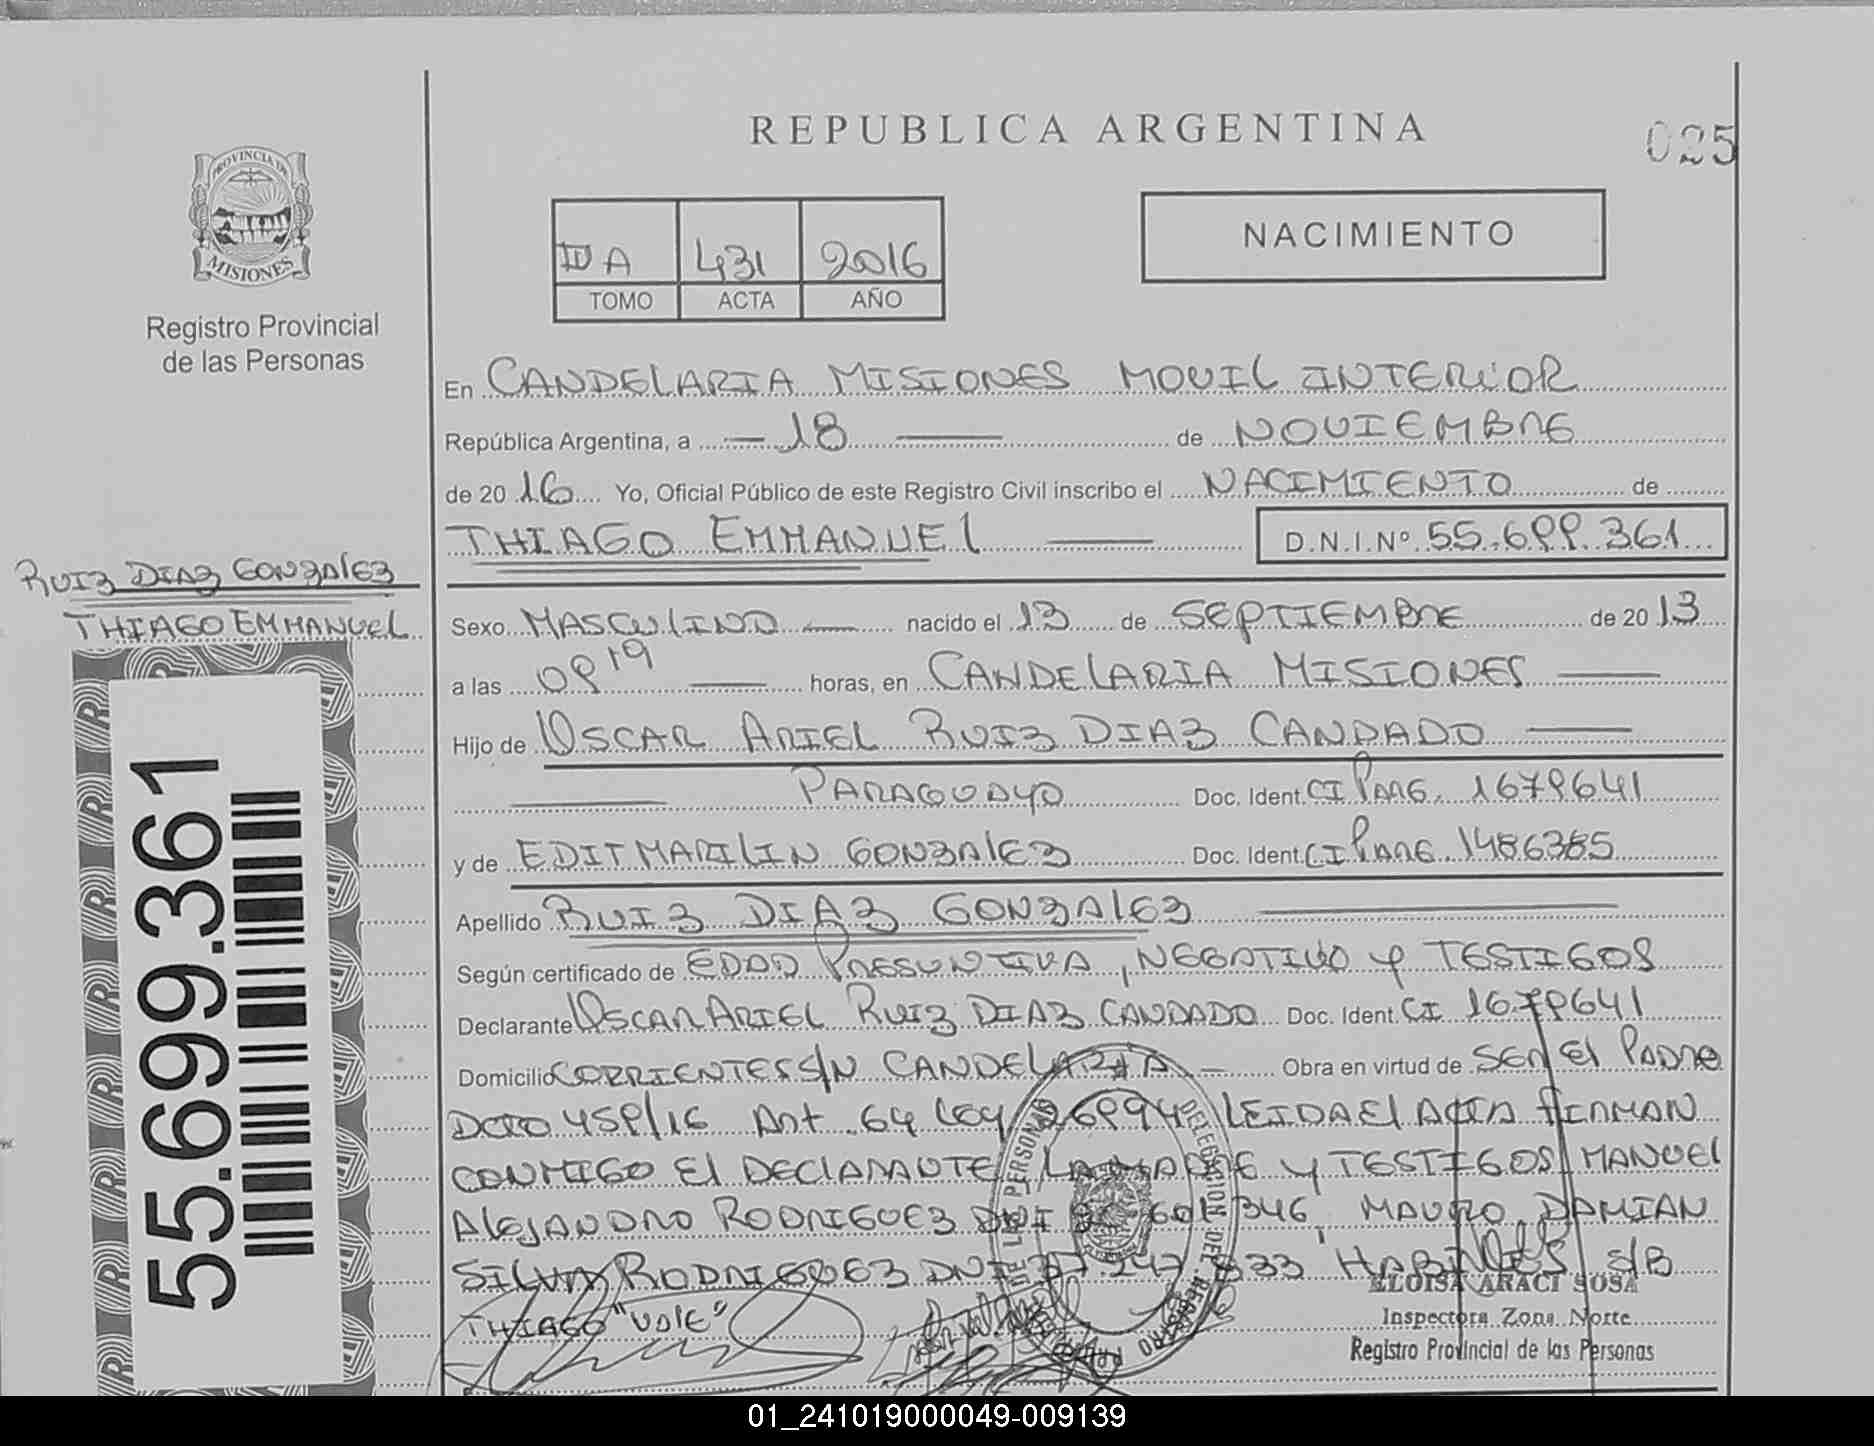 REPUBLICA ARGENTINA
025
PROVINCIA DE
MISIONES
Registro Provincial
de las Personas
II A 431 2016
TOMO ACTA AÑO
NACIMIENTO
En CANDELARIA MISIONES MOVIL INTERIOR
República Argentina, a 18 de NOVIEMBRE
de 2016 Yo, Oficial Público de este Registro Civil inscribo el NACIMIENTO de
THIAGO EMMANUEL D.N.I.Nº 55.699.361
RUIZ DIAZ GONZALEZ
THIAGO EMMANUEL
55.699.361
Sexo MASCULINO nacido el 13 de SEPTIEMBRE de 2013
a las 09 19 horas, en CANDELARIA MISIONES
Hijo de OSCAR ARIEL RUIZ DIAZ CANDADO
PARAGUAYO Doc. Ident. CI PARG. 1679641
y de EDIT MARILIN GONZALEZ Doc. Ident. CI PARG 1486385
Apellido RUIZ DIAZ GONZALEZ
Según certificado de EDAD PRESUNTIVA, NEGATIVO y TESTIGOS
Declarante OSCAR ARIEL RUIZ DIAZ CANDADO Doc. Ident. CI 1679641
Domicilio CORRIENTES S/N CANDELARIA Obra en virtud de SER El PADRE
DCTO 459/16 Art. 64 Ley 26994 LEIDA El ACTA FIRMAN
CONMIGO El DECLARANTE LA MADRE y TESTIGOS MANUEL
AlejANDRO RODRIGUEZ DNI 601 346, MAURO DAMIAN
SILVA RODRIGUEZ DNI 37.247 833 s/B
THIAGO "VALE"
DE LAS PERSONAS
DELEGACION DEL REGISTRO
ELOISA ARACI SOSA
Inspectora Zona Norte
Registro Provincial de las Personas
01_241019000049-009139